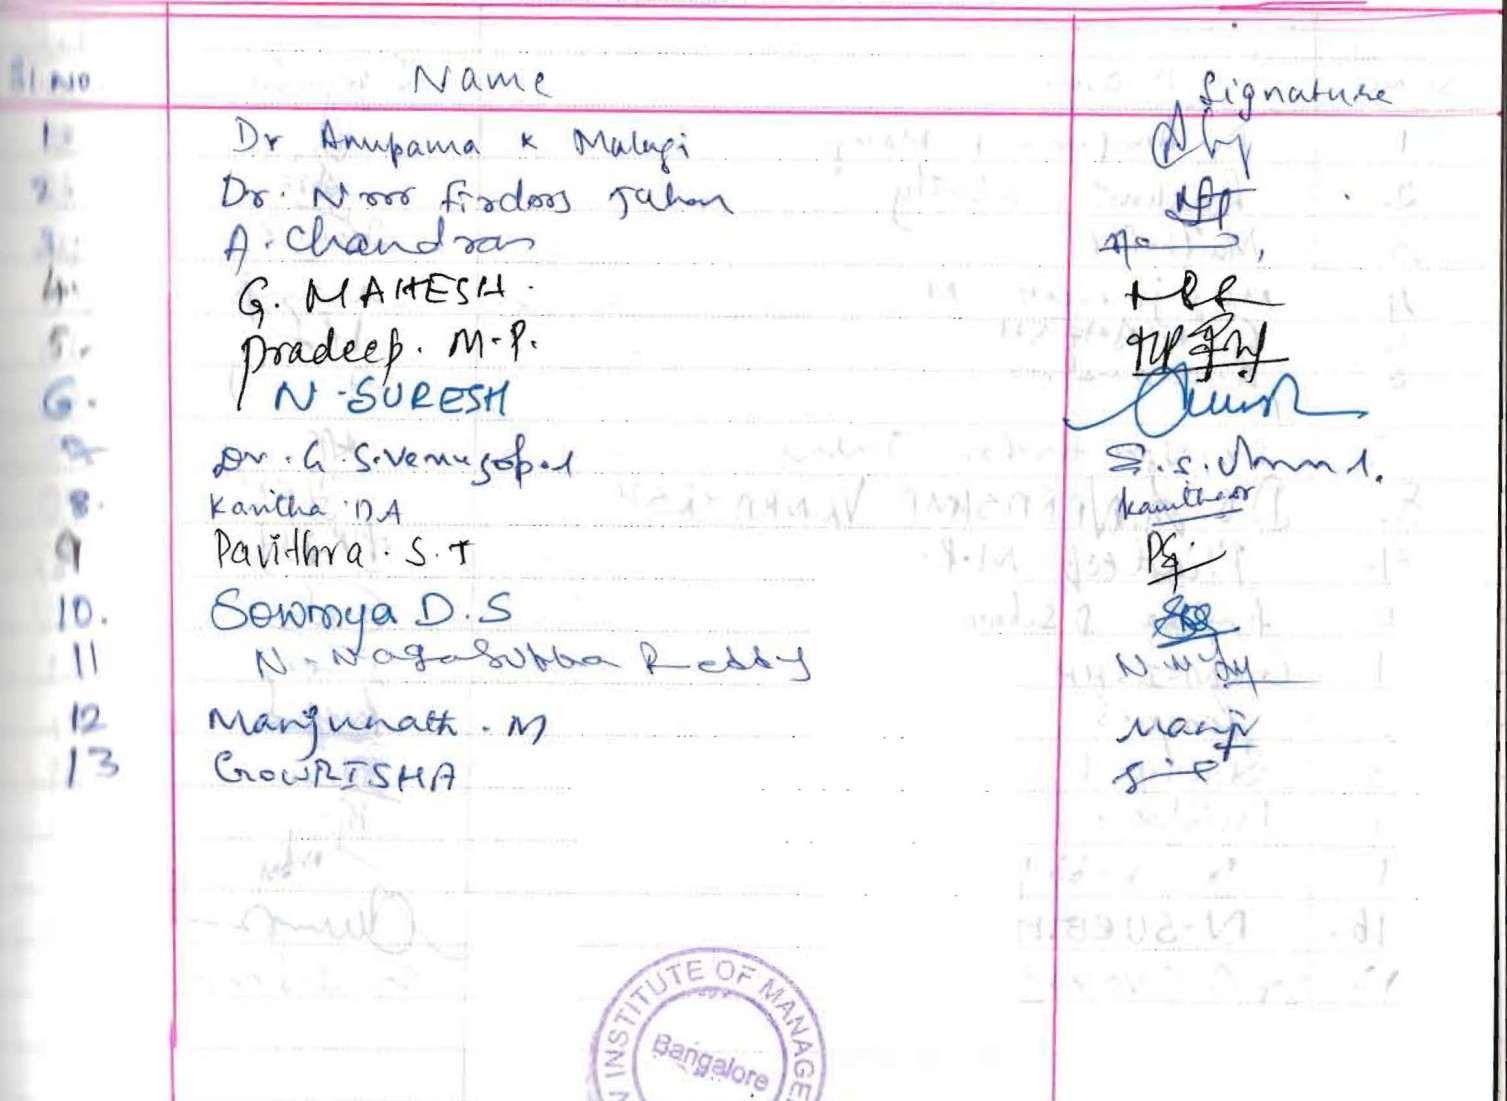 Sl. No Name Signature
1. Dr Anupama K Malagi
2. Dr. Noor firdoos Jahan
3. A. Chandran
4. G. MAHESH.
5. Pradeep. M.P.
6. N. SURESH
7 Dr. G. S. Venugopal
8. Kavitha DA Kavitha
9 Pavithra. S. T PS.
10. Sowmya D.S
11 N. Nagasubba Reddy
12 Manjunath. M Manju
13 GOWRISHA
N INSTITUTE OF MANAGE
Bangalore